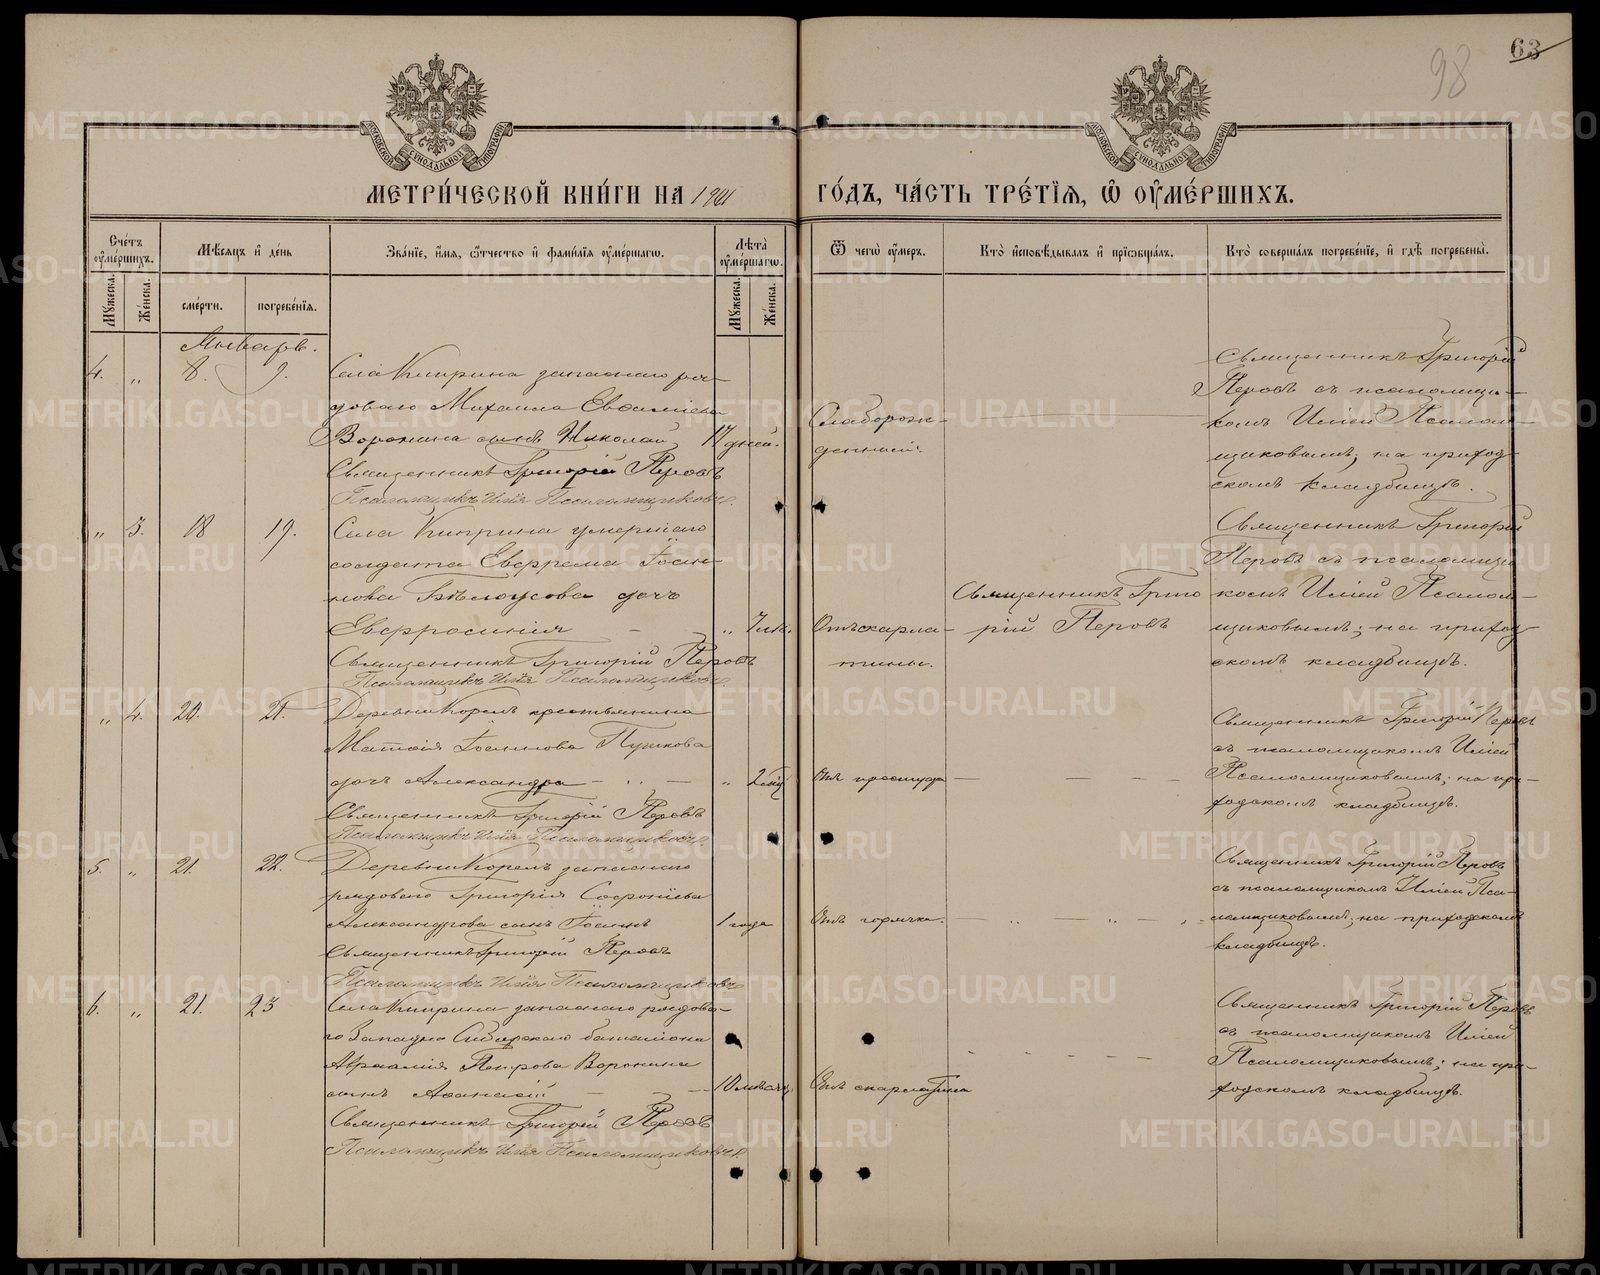 98
63
МОСКОВСКОЙ СѴНОДАЛЬНОЙ ТИПОГРАФІИ
МОСКОВСКОЙ СѴНОДАЛЬНОЙ ТИПОГРАФІИ
МЕТРИ́ЧЕСКОЙ КНИ́ГИ НА 1901 ГО́ДЪ, ЧА́СТЬ ТРЕ́ТІЯ, Ѽ ОУ҆МЕ́РШИХЪ.
Сче́тъ оу҆ме́ршихъ.
Мѣ́сяцъ и҆ де́нь
Зва́ніе, и҆́мя, ѻ҆́тчество и҆ фами́лія оу҆ме́ршагѡ.
Лѣта̀ оу҆ме́ршагѡ.
Ѿ чегѡ̀ оу҆́меръ.
Кто̀ и҆сповѣ́дывалъ и҆ пріѡбща́лъ.
Кто̀ соверша́лъ погребе́ніе, и҆ гдѣ̀ погребены̀.
Мꙋ́жеска.
Же́нска.
сме́рти.
погребе́нія.
Мꙋ́жеска.
Же́нска.
Январь.
4. „ 8. 9.
Села Киприна запаснаго ря-
доваго Михаила Евѳиміева
Воронина сынъ Николай 17 дней.
Священникъ Григорій Перовъ
Псаломщикъ Илія Псаломщиковъ.
Слаборож-
денный.
Священникъ Григорій
Перовъ съ псаломщи-
комъ Иліей Псалом-
щиковымъ; на приход-
скомъ кладбищѣ.
„ 3. 18 19.
Села Киприна умершаго
солдата Евфрема Іоан-
нова Бѣлоусова дочь
Евфросинія „ 7 лѣ.
Священникъ Григорій Перовъ
Псаломщикъ Илія Псаломщиковъ.
Отъ скарла-
тины.
Священникъ Григо
рій Перовъ
Священникъ Григорій
Перовъ съ псаломщи
комъ Иліей Псалом-
щиковымъ; на приход
скомъ кладбищѣ.
„ 4. 20. 21.
Деревни Корелъ крестьянина
Матѳія Іоаннова Пушкова
дочь Александра „
Священникъ Григорій Перовъ
Псаломщикъ Илія Псаломщиковъ.
Отъ простуды
Священникъ Григорій Перовъ
съ псаломщикомъ Иліей
Псаломщиковымъ; на при-
ходскомъ кладбищѣ.
5. „ 21. 22.
Деревни Корелъ запаснаго
рядоваго Григорія Софоніева
Александрова сынъ Іоаннъ 1 года
Священникъ Григорій Перовъ
Псаломщикъ Илія Псаломщиковъ
Отъ горячки.
Священникъ Григорій Перовъ
съ псаломщикомъ Иліей Пса-
ломщиковымъ; на приходскомъ
кладбищѣ.
6. „ 21. 23
Села Киприна запаснаго рядова-
го Западно Сибирскаго баталіона
Авраамія Петрова Воронина
сынъ Аѳанасій 10 мѣсяц.
Священникъ Григорій Перовъ
Псаломщикъ Илія Псаломщиковъ.
Отъ скарлатина
Священникъ Григорій Перовъ
съ псаломщикомъ Иліей
Псаломщиковымъ; на при-
ходскомъ кладбищѣ.
METRIKI.GASO-URAL.RU